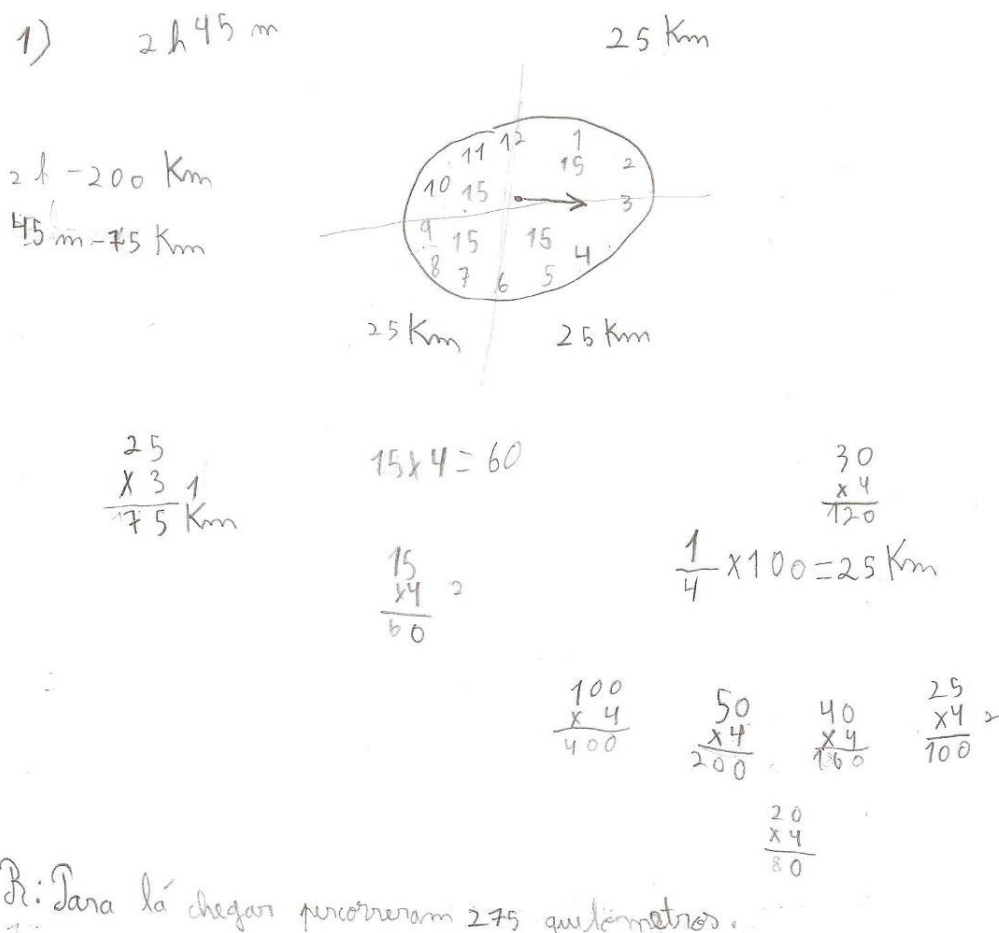 1) 2h 45 m 25 Km
2h - 200 Km
45 m - 75 Km
11 12 1
15 2
10 15 3
9 15 15 4
8 7 6 5
25 Km 25 Km
25
x 3 1
75 Km
15x4=60
30
x 4
120
15
x4 2
60
1/4 x100=25 Km
100
x 4
400
50
x4
200
40
x4
160
25
x4 2
100
20
x4
80
R: Para lá chegar percorreram 275 quilómetros.